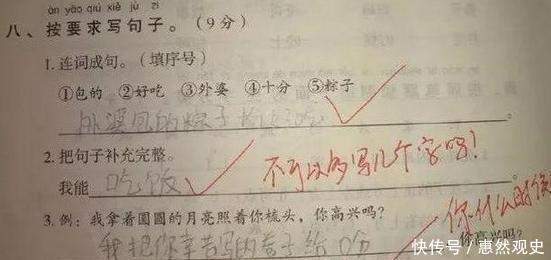 àn yāo qiú xiě jù zi
八、按要求写句子。(9分)
1.连词成句。(填序号)
①包的 ②好吃 ③外婆 ④十分 ⑤粽子
外婆包的粽子
2.把句子补充完整。
不可以多写几个字吗!
我能吃饭。
3.例:我拿着圆圆的月亮照着你梳头,你高兴吗?
你什么时候
我把你辛苦写的 给 你高兴吗?
快传号/惠然观史